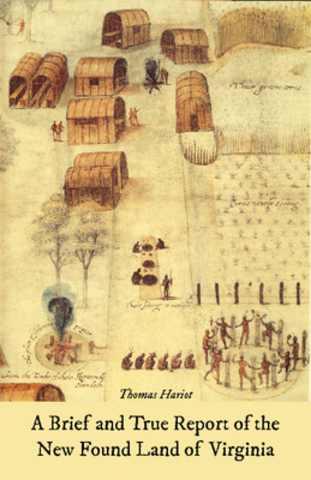 Their greene corne.
Corne newly sprong.
Their sitting at meate.
Thomas Hariot
A Brief and True Report of the
New Found Land of Virginia